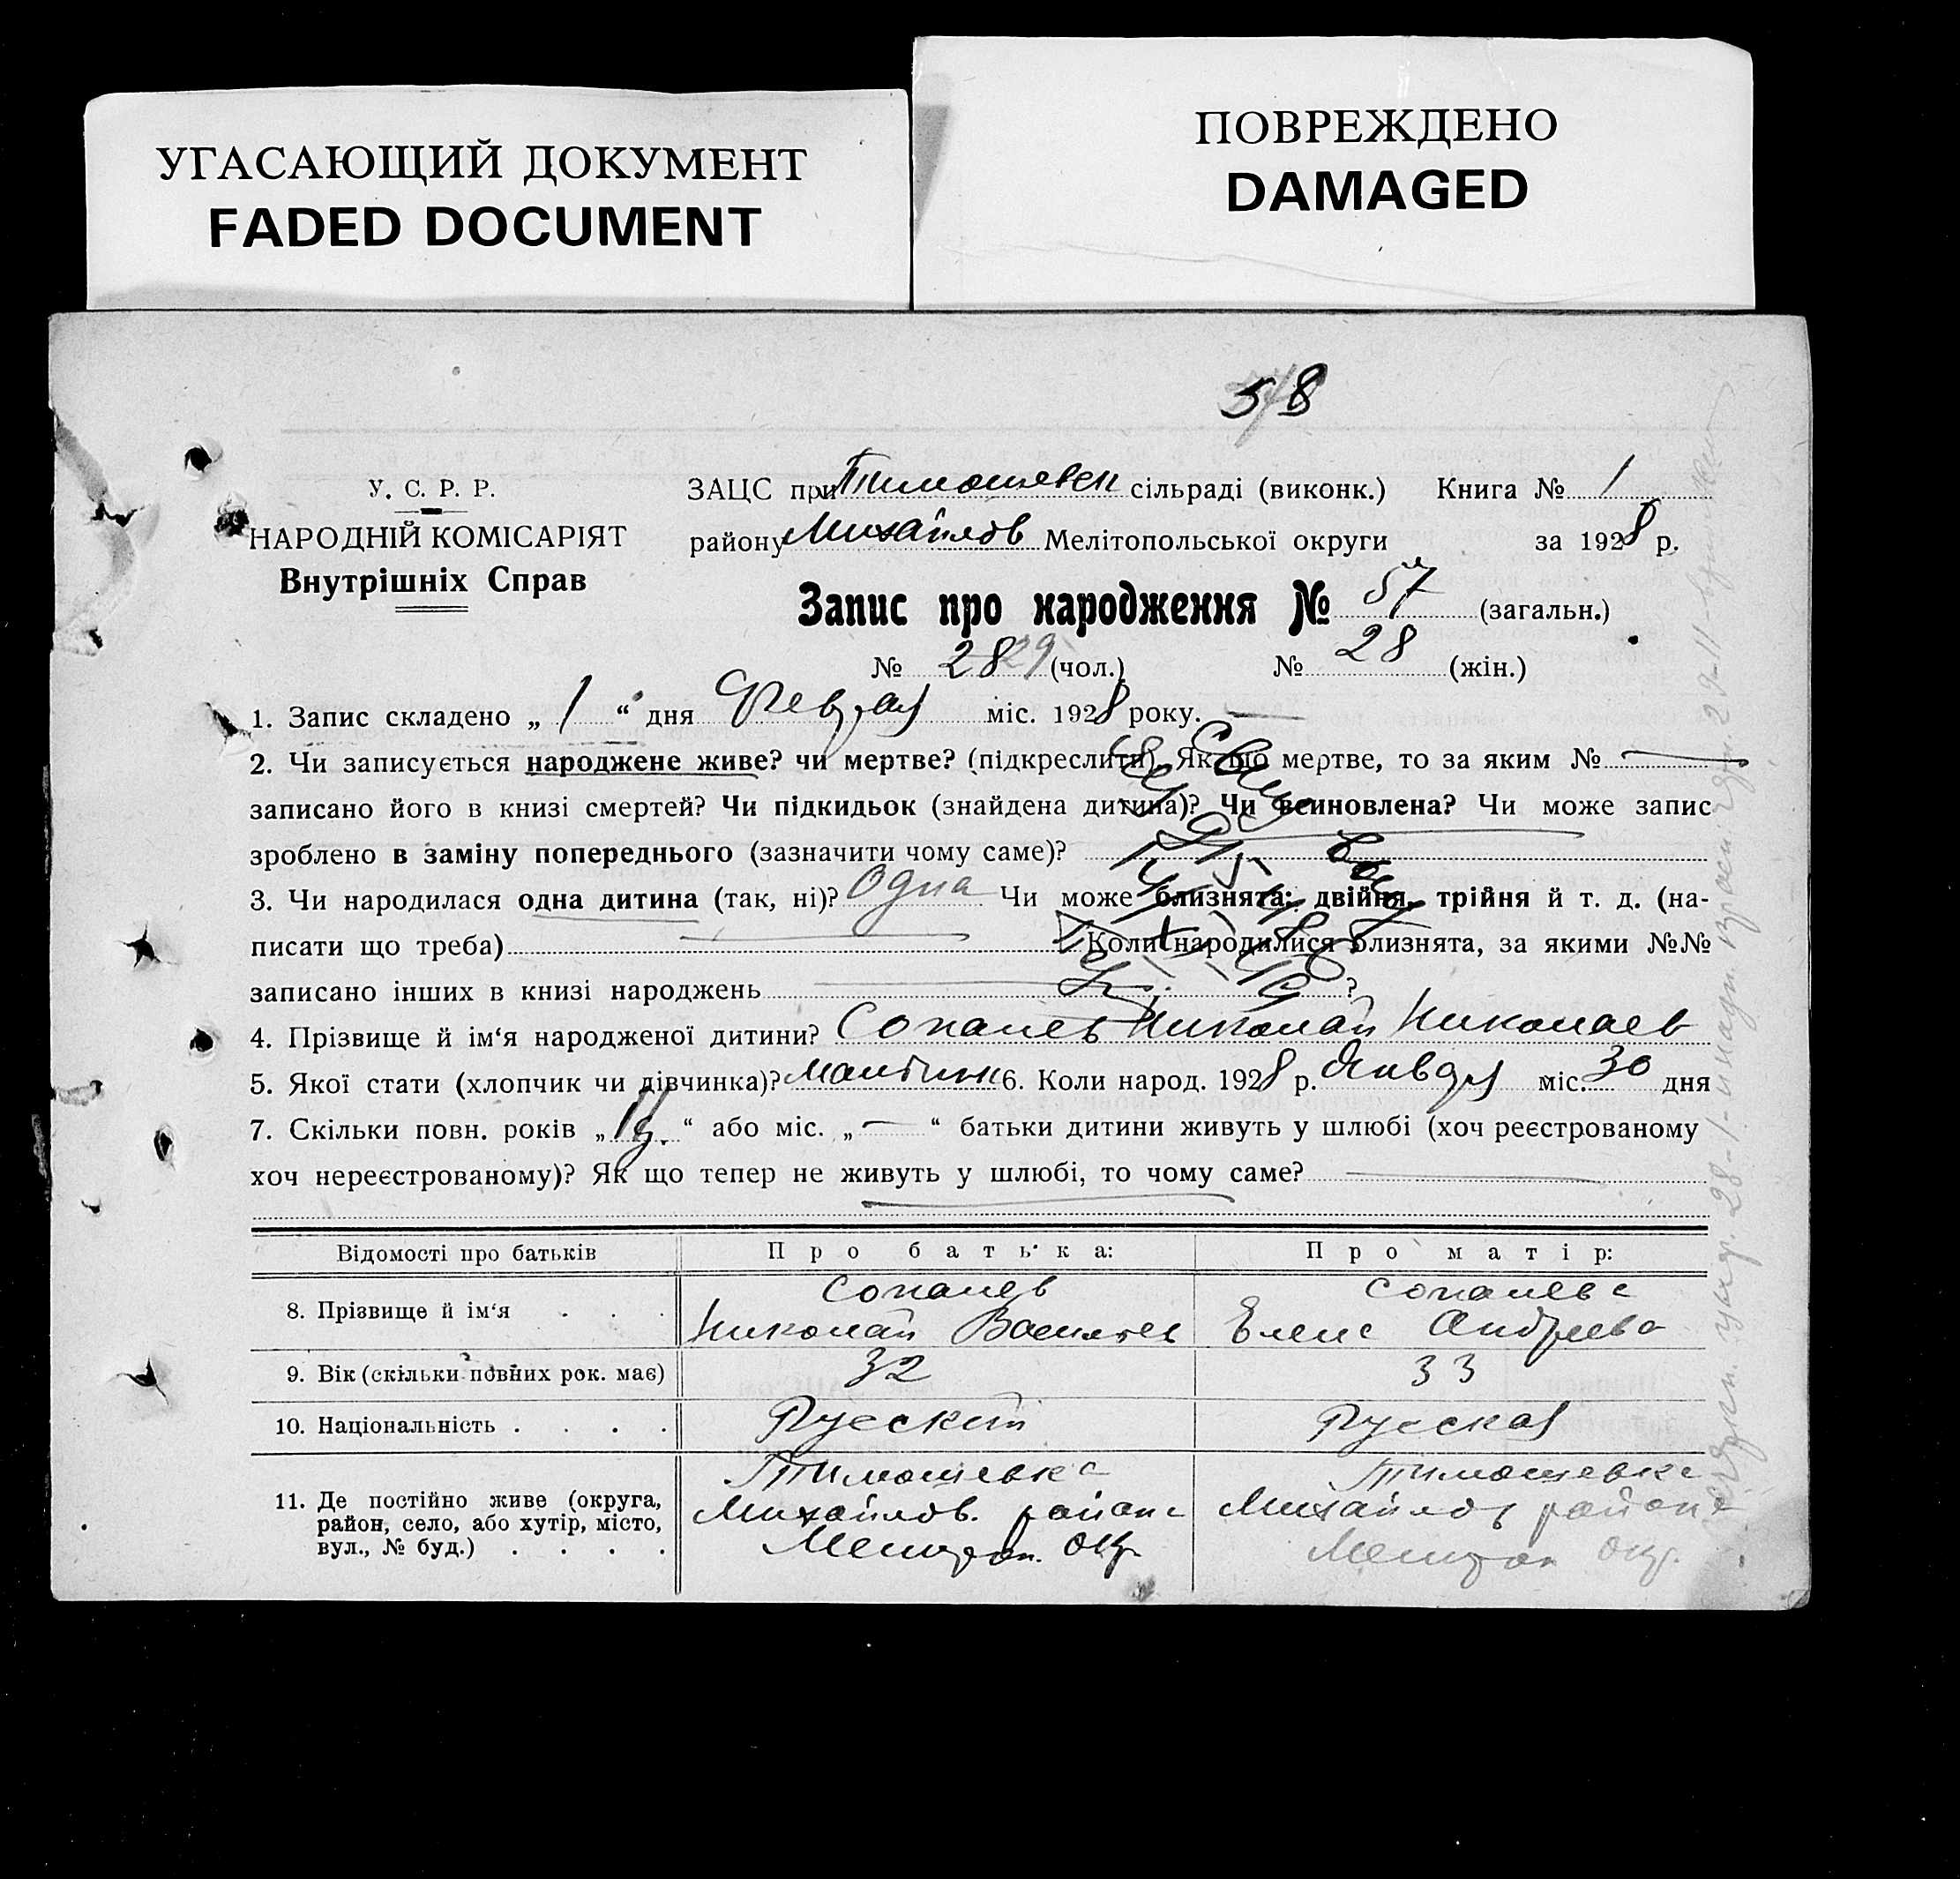 УГАСАЮЩИЙ ДОКУМЕНТ
FADED DOCUMENT
ПОВРЕЖДЕНО
DAMAGED
58
У. С. Р. Р.
НАРОДНІЙ КОМІСАРІЯТ
Внутрішніх Справ
ЗАЦС при Тимошевск сільраді (виконк.) Книга № 1
району Михайлов Мелітопольської округи за 1928 р.
Запис про народження № 57 (загальн.)
№ 28 29 (чол.) № 28 (жін.)
1. Запис складено „ 1 “ дня Февраля міс. 1928 року.
2. Чи записується народжене живе? чи мертве? (підкреслити). Як що мертве, то за яким №
записано його в книзі смертей? Чи підкидьок (знайдена дитина)? Чи всиновлена? Чи може запис
зроблено в заміну попереднього (зазначити чому саме)?
3. Чи народилася одна дитина (так, ні)? Одна Чи може близнята: двійня, трійня й т. д. (на-
писати що треба) Коли народилися близнята, за якими №№
записано інших в книзі народжень ?
4. Прізвище й ім'я народженої дитини? Николай Николаев
5. Якої стати (хлопчик чи дівчинка)? 6. Коли народ. 1928 р. Января міс. 30 дня
7. Скільки повн. років „ “ або міс. „ — “ батьки дитини живуть у шлюбі (хоч реєстрованому
хоч нереєстрованому)? Як що тепер не живуть у шлюбі, то чому саме?
Відомості про батьків Про батька: Про матір:
8. Прізвище й ім'я . . .
Николай Васильев Елена Андреева
9. Вік (скільки повних рок. має) 32 33
10. Національність . . . . Русский Русская
11. Де постійно живе (округа, район, село, або хутір, місто, вул., № буд.) . . . .
Тимошевка Тимошевка
Михайлов. района Михайлов района
Мелитоп. окр. Мелитоп окр.